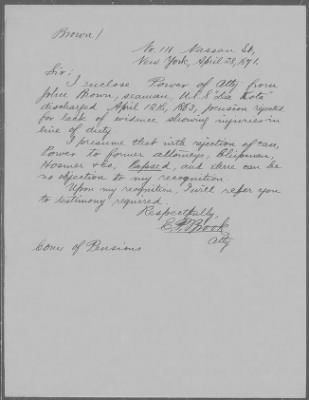 Brown /
No. 111 Nassau St,
New York, April 28, 1891.
Sir:
I enclose Power of Atty from
John Brown, seaman, U.S.S.
discharged April 12th, 1863, pension rejected
for lack of evidence showing injuries in
line of duty.
I presume that with rejection of case,
Power to former attorneys, Chipman,
Hosmer & Co, lapsed, and there can be
no objection to my recognition
Upon my recognition, I will refer you
to testimony required.
Respectfully,
Atty
Comr of Pensions